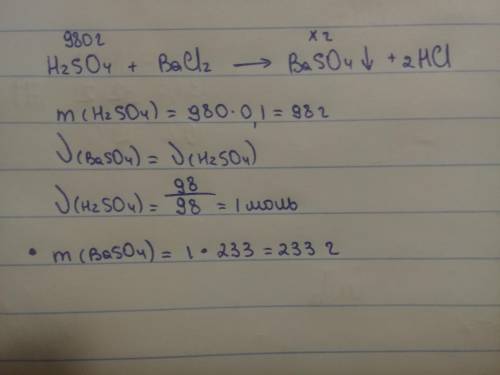 980г хг
H2SO4 + BaCl2 → BaSO4↓ + 2HCl
m(H2SO4) = 980·0,1 = 98г
ν(BaSO4) = ν(H2SO4)
ν(H2SO4) = 98/98 = 1 моль
• m(BaSO4) = 1 · 233 = 233 г